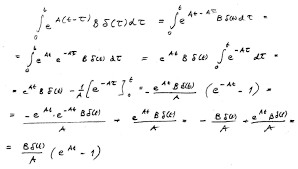 ∫₀ᵗ e^{A(t-τ)} B δ(τ) dτ = ∫₀ᵗ e^{At - Aτ} B δ(t) dτ =
= ∫₀ᵗ e^{At} e^{-Aτ} B δ(t) dτ = e^{At} B δ(t) ∫₀ᵗ e^{-Aτ} dτ =
= e^{At} B δ(t) · -1/A [e^{-Aτ}]₀ᵗ = - e^{At} B δ(t)/A (e^{-At} - 1) =
= - e^{At} · e^{-At} B δ(t)/A + e^{At} B δ(t)/A = - B δ(t)/A + e^{At} B δ(t)/A =
= B δ(t)/A (e^{At} - 1)